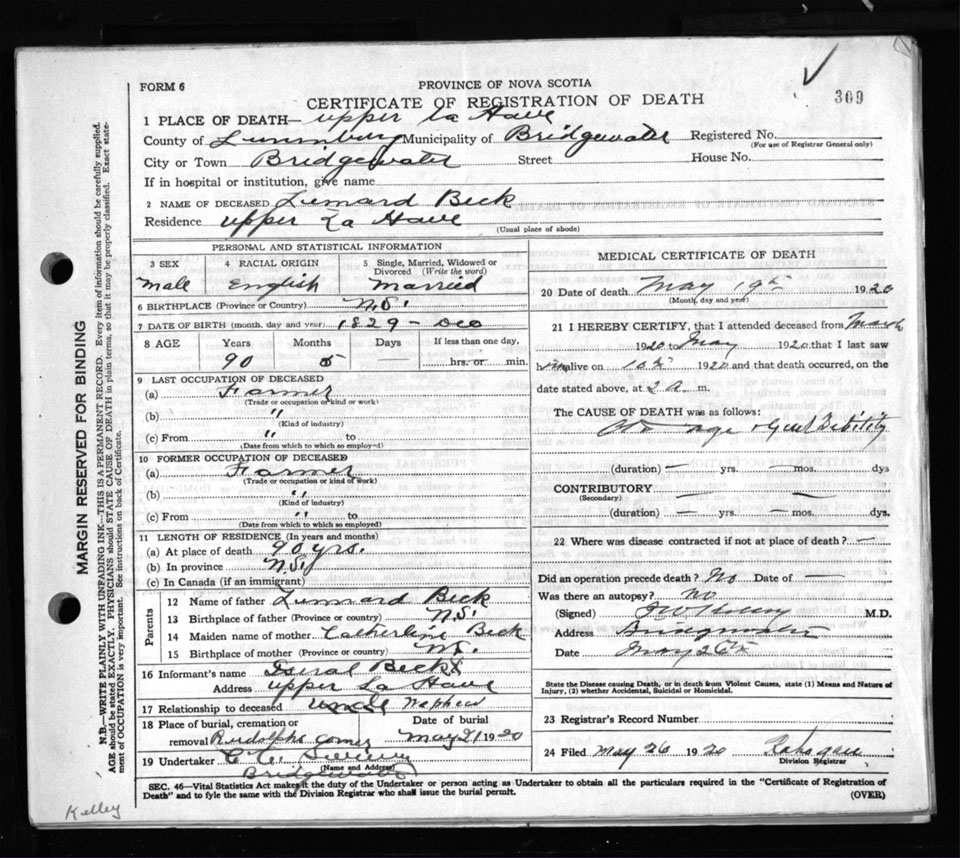 FORM 6
PROVINCE OF NOVA SCOTIA
CERTIFICATE OF REGISTRATION OF DEATH
309
1 PLACE OF DEATH— upper La Have
County of Lunenburg Municipality of Bridgewater Registered No.
(For use of Registrar General only)
City or Town Bridgewater Street House No.
If in hospital or institution, give name
2 NAME OF DECEASED Lennard Beck
Residence upper La Have
(Usual place of abode)
PERSONAL AND STATISTICAL INFORMATION
3 SEX 4 RACIAL ORIGIN 5 Single, Married, Widowed or Divorced (Write the word)
Male English Married
6 BIRTHPLACE (Province or Country) N.S.
7 DATE OF BIRTH (month, day and year) 1829 – Dec
8 AGE Years Months Days If less than one day,
90 5 hrs. or min.
9 LAST OCCUPATION OF DECEASED
(a) Farmer
(Trade or occupation or kind or work)
(b) "
(Kind of industry)
(c) From " to
(Date from which to which so employed)
10 FORMER OCCUPATION OF DECEASED
(a) Farmer
(Trade or occupation or kind of work)
(b) "
(Kind of industry)
(c) From " to
(Date from which to which so employed)
11 LENGTH OF RESIDENCE (In years and months)
(a) At place of death 90 yrs.
(b) In province N.S.
(c) In Canada (if an immigrant)
Parents
12 Name of father Lennard Beck
13 Birthplace of father (Province or country) N.S.
14 Maiden name of mother Catherine Beck
15 Birthplace of mother (Province or country) N.S.
16 Informant's name Beck
Address upper La Have
17 Relationship to deceased uncle Naphew
18 Place of burial, cremation or removal Rudolphs Corner
Date of burial May 21 1920
19 Undertaker
(Name and Address)
Bridgewater
MEDICAL CERTIFICATE OF DEATH
20 Date of death May 19th 1920
(Month, day and year)
21 I HEREBY CERTIFY, that I attended deceased from March
1920 to May 1920 that I last saw
him alive on 16th 1920 and that death occurred, on the
date stated above, at 2 a. m.
The CAUSE OF DEATH was as follows:
Old age & Genl Debility
(duration) — yrs. — mos. dys
CONTRIBUTORY
(Secondary)
(duration) — yrs. — mos. dys.
22 Where was disease contracted if not at place of death? —
Did an operation precede death? No Date of —
Was there an autopsy? No
(Signed) M.D.
Address Bridgewater
Date May 26th
State the Disease causing Death, or in death from Violent Causes, state (1) Means and Nature of
Injury, (2) whether Accidental, Suicidal or Homicidal.
23 Registrar's Record Number
24 Filed May 26 1920
Division Registrar
SEC. 46—Vital Statistics Act makes it the duty of the Undertaker or person acting as Undertaker to obtain all the particulars required in the "Certificate of Registration of
Death" and to fyle the same with the Division Registrar who shall issue the burial permit.
(OVER)
MARGIN RESERVED FOR BINDING
N.B.—WRITE PLAINLY WITH UNFADING INK—THIS IS A PERMANENT RECORD. Every item of information should be carefully supplied.
AGE should be stated EXACTLY. PHYSICIANS should STATE CAUSE OF DEATH in plain terms, so that it may be properly classified. Exact state-
ment of OCCUPATION is very important. See instructions on back of Certificate.
Kelley